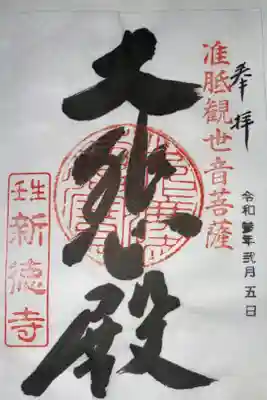 奉拝
准胝観世音菩薩
令和参年弐月五日
大悲殿
壬生
新徳寺